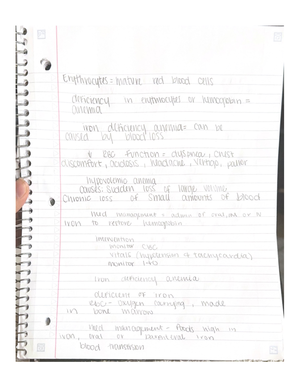 Erythrocytes = mature red blood cells
deficiency in erythrocytes or hemoglobin =
anemia
iron deficiency anemia = can be
caused by blood loss
↓ RBC function = dyspnea, chest
discomfort, acidosis, headache, vertigo, pallor
hypovolemic anemia
causes: sudden loss of large volume
Chronic loss of small amounts of blood
med management = admin of oral, IM, or IV
iron to restore hemoglobin
intervention
monitor CBC
vitals (hypotension + tachycardia)
monitor I+O
Iron deficiency anemia
deficient of iron
RBC - oxygen carrying, made
in bone marrow
med management - foods high in
iron, oral or parenteral iron
blood transfusion